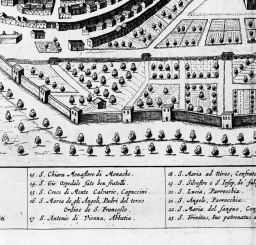 13. S. Chiara Monastero di Monache.
14. S. Gio Ospedale fate ben fratelli.
15. S. Croce di Monte Calvario, Capuccini.
16. S. Maria de gli Angeli, Padri del terzo
Ordine di S. Francesco.
17. S. Antonio di Vienna, Abbatia.
18. S. Maria ad Nives, Confrat
19. S. Silvestro e S.
20. S. Lucia, Parrocchia
21. S. Angelo, Parrocchia
22. S. Maria del sangue, Con
23. S. Trinita, Ius patronatus